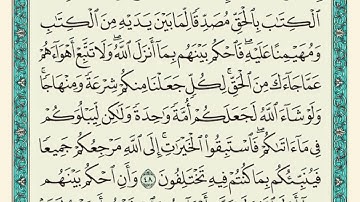 ٱلْكِتَٰبَ بِٱلْحَقِّ مُصَدِّقًا لِّمَا بَيْنَ يَدَيْهِ مِنَ ٱلْكِتَٰبِ
وَمُهَيْمِنًا عَلَيْهِ ۖ فَٱحْكُم بَيْنَهُم بِمَآ أَنزَلَ ٱللَّهُ ۖ وَلَا تَتَّبِعْ أَهْوَآءَهُمْ
عَمَّا جَآءَكَ مِنَ ٱلْحَقِّ ۚ لِكُلٍّ جَعَلْنَا مِنكُمْ شِرْعَةً وَمِنْهَاجًا ۚ
وَلَوْ شَآءَ ٱللَّهُ لَجَعَلَكُمْ أُمَّةً وَٰحِدَةً وَلَٰكِن لِّيَبْلُوَكُمْ
فِى مَآ ءَاتَىٰكُمْ ۖ فَٱسْتَبِقُوا۟ ٱلْخَيْرَٰتِ ۚ إِلَى ٱللَّهِ مَرْجِعُكُمْ جَمِيعًا
فَيُنَبِّئُكُم بِمَا كُنتُمْ فِيهِ تَخْتَلِفُونَ ٤٨ وَأَنِ ٱحْكُم بَيْنَهُم